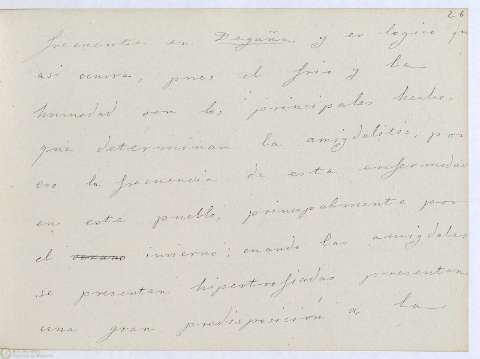 26
frecuentes en Degaña y es logico q
asi ocurra, pues el frio y la
humedad son los principales hechos,
que determinan la amigdalitis, por
eso la frecuencia de esta enfermedad
en este pueblo, principalmente por
el verano invierno; cuando las amigdalas
se presentan hipertrofiadas presentan
una gran predisposición a la